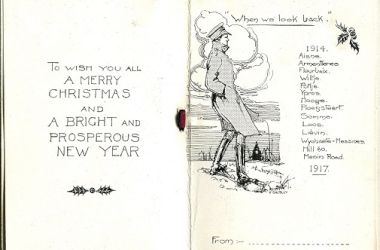 TO WISH YOU ALL
A MERRY
CHRISTMAS
AND
A BRIGHT AND
PROSPEROUS
NEW YEAR
"When we look back."
1914.
Aisne.
Armentieres
Fleurbaix.
Ypres.
Hooge.
Ploegsteert.
Somme.
Loos.
Lievin.
Wytschaete-Messines
Hill 60.
Menin Road.
1917.
From :-